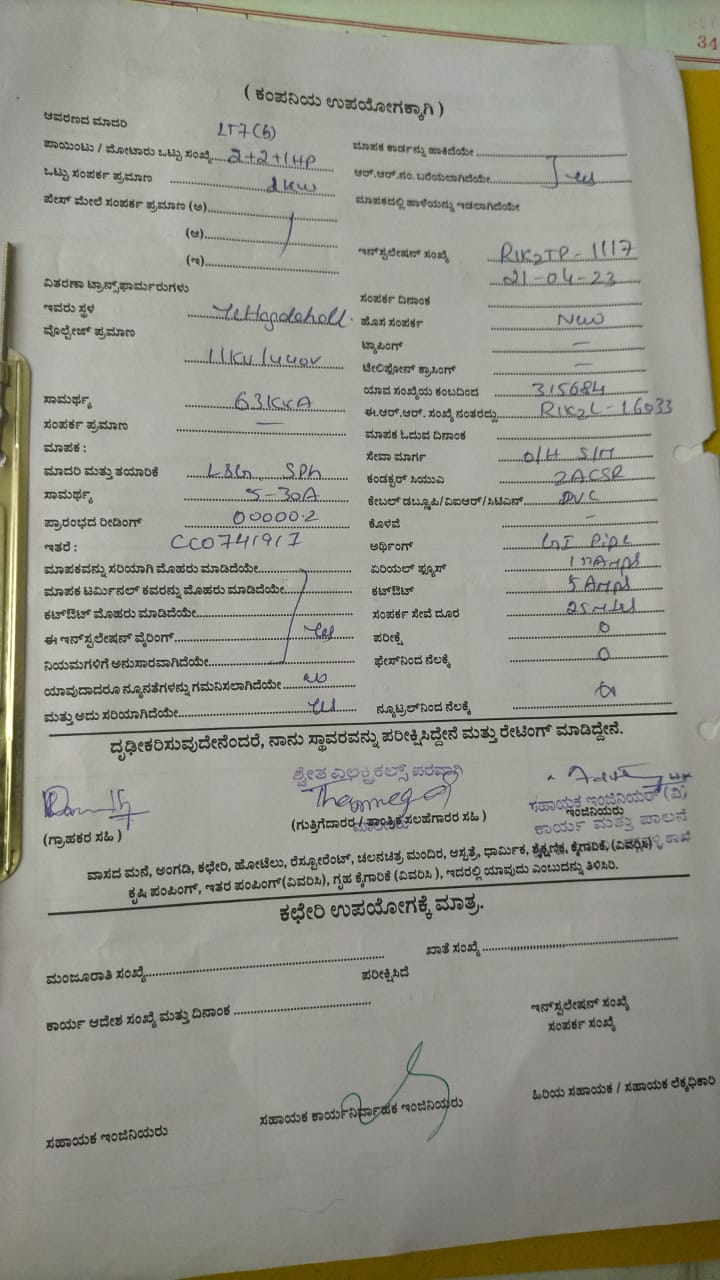 34
( ಕಂಪನಿಯ ಉಪಯೋಗಕ್ಕಾಗಿ )
ಆವರಣದ ಮಾದರಿ LT7(b)
ಪಾಯಿಂಟು / ಮೋಟಾರು ಒಟ್ಟು ಸಂಖ್ಯೆ 2+2+1HP
ಒಟ್ಟು ಸಂಪರ್ಕ ಪ್ರಮಾಣ 2KW
ಪೇಸ್ ಮೇಲೆ ಸಂಪರ್ಕ ಪ್ರಮಾಣ (ಅ)
(ಆ)
(ಇ)
ವಿತರಣಾ ಟ್ರಾನ್ಸ್‌ಫಾರ್ಮರುಗಳು
ಇವರು ಸ್ಥಳ
ವೋಲ್ಟೇಜ್ ಪ್ರಮಾಣ
11KV/440V
ಸಾಮರ್ಥ್ಯ 63KVA
ಸಂಪರ್ಕ ಪ್ರಮಾಣ —
ಮಾಪಕ :
ಮಾದರಿ ಮತ್ತು ತಯಾರಿಕೆ L&G, SPh
ಸಾಮರ್ಥ್ಯ 5-30A
ಪ್ರಾರಂಭದ ರೀಡಿಂಗ್ 00000.2
ಇತರೆ : CC0741917
ಮಾಪಕವನ್ನು ಸರಿಯಾಗಿ ಮೊಹರು ಮಾಡಿದೆಯೇ
ಮಾಪಕ ಟರ್ಮಿನಲ್ ಕವರನ್ನು ಮೊಹರು ಮಾಡಿದೆಯೇ
ಕಟ್‌ಔಟ್ ಮೊಹರು ಮಾಡಿದೆಯೇ
ಈ ಇನ್‌ಸ್ಟಲೇಷನ್ ವೈರಿಂಗ್ yes
ನಿಯಮಗಳಿಗೆ ಅನುಸಾರವಾಗಿದೆಯೇ
ಯಾವುದಾದರೂ ನ್ಯೂನತೆಗಳನ್ನು ಗಮನಿಸಲಾಗಿದೆಯೇ no
ಮತ್ತು ಅದು ಸರಿಯಾಗಿದೆಯೇ yes
ಮಾಪಕ ಕಾರ್ಡನ್ನು ಹಾಕಿದೆಯೇ
ಆರ್.ಆರ್.ನಂ. ಬರೆಯಲಾಗಿದೆಯೇ yes
ಮಾಪಕದಲ್ಲಿ ಹಾಳೆಯನ್ನು ಇಡಲಾಗಿದೆಯೇ
ಇನ್‌ಸ್ಟಲೇಷನ್ ಸಂಖ್ಯೆ R1K2TP-1117
21-04-23
ಸಂಪರ್ಕ ದಿನಾಂಕ
ಹೊಸ ಸಂಪರ್ಕ New
ಟ್ಯಾಪಿಂಗ್ —
ಟೆಲಿಫೋನ್ ಕ್ರಾಸಿಂಗ್ —
ಯಾವ ಸಂಖ್ಯೆಯ ಕಂಬದಿಂದ 315684
ಈ.ಆರ್.ಆರ್. ಸಂಖ್ಯೆ ನಂತರದ್ದು R1K2L-16033
ಮಾಪಕ ಓದುವ ದಿನಾಂಕ
ಸೇವಾ ಮಾರ್ಗ O/H S/M
ಕಂಡಕ್ಟರ್ ಸಿಯುಎ 2ACSR
ಕೇಬಲ್ ಡಬ್ಲ್ಯೂಪಿ/ವಿಐಆರ್/ಸಿಟಿಎಸ್ PVC
ಕೊಳವೆ —
ಅರ್ಥಿಂಗ್ GI Pipe
ಏರಿಯಲ್ ಫ್ಯೂಸ್
ಕಟ್‌ಔಟ್ 5 Amps
ಸಂಪರ್ಕ ಸೇವೆ ದೂರ 25 Mtrs
ಪರೀಕ್ಷೆ 0
ಫೇಸ್‌ನಿಂದ ನೆಲಕ್ಕೆ 0
ನ್ಯೂಟ್ರಲ್‌ನಿಂದ ನೆಲಕ್ಕೆ
ದೃಢೀಕರಿಸುವುದೇನೆಂದರೆ, ನಾನು ಸ್ಥಾವರವನ್ನು ಪರೀಕ್ಷಿಸಿದ್ದೇನೆ ಮತ್ತು ರೇಟಿಂಗ್ ಮಾಡಿದ್ದೇನೆ.
ಶ್ವೇತ ಎಲೆಕ್ಟ್ರಿಕಲ್ಸ್ ಪರವಾಗಿ
ಸಹಾಯಕ ಇಂಜಿನಿಯರ್ (ವಿ)
(ಗ್ರಾಹಕರ ಸಹಿ )
(ಗುತ್ತಿಗೆದಾರರ / ತಾಂತ್ರಿಕ ಸಲಹೆಗಾರರ ಸಹಿ )
ಇಂಜಿನಿಯರು
ಕಾರ್ಯ ಮತ್ತು ಪಾಲನೆ
ವಾಸದ ಮನೆ, ಅಂಗಡಿ, ಕಛೇರಿ, ಹೋಟೆಲು, ರೆಸ್ಟೋರೆಂಟ್, ಚಲನಚಿತ್ರ ಮಂದಿರ, ಆಸ್ಪತ್ರೆ, ಧಾರ್ಮಿಕ, ಶೈಕ್ಷಣಿಕ, ಕೈಗಾರಿಕೆ, (ವಿವರಿಸಿ)
ಕೃಷಿ ಪಂಪಿಂಗ್, ಇತರ ಪಂಪಿಂಗ್(ವಿವರಿಸಿ), ಗೃಹ ಕೈಗಾರಿಕೆ (ವಿವರಿಸಿ ), ಇದರಲ್ಲಿ ಯಾವುದು ಎಂಬುದನ್ನು ತಿಳಿಸಿರಿ.
ಕಛೇರಿ ಉಪಯೋಗಕ್ಕೆ ಮಾತ್ರ.
ಮಂಜೂರಾತಿ ಸಂಖ್ಯೆ
ಖಾತೆ ಸಂಖ್ಯೆ
ಪರೀಕ್ಷಿಸಿದೆ
ಕಾರ್ಯ ಆದೇಶ ಸಂಖ್ಯೆ ಮತ್ತು ದಿನಾಂಕ
ಇನ್‌ಸ್ಟಲೇಷನ್ ಸಂಖ್ಯೆ
ಸಂಪರ್ಕ ಸಂಖ್ಯೆ
ಸಹಾಯಕ ಇಂಜಿನಿಯರು
ಸಹಾಯಕ ಕಾರ್ಯನಿರ್ವಾಹಕ ಇಂಜಿನಿಯರು
ಹಿರಿಯ ಸಹಾಯಕ / ಸಹಾಯಕ ಲೆಕ್ಕಧಿಕಾರಿ